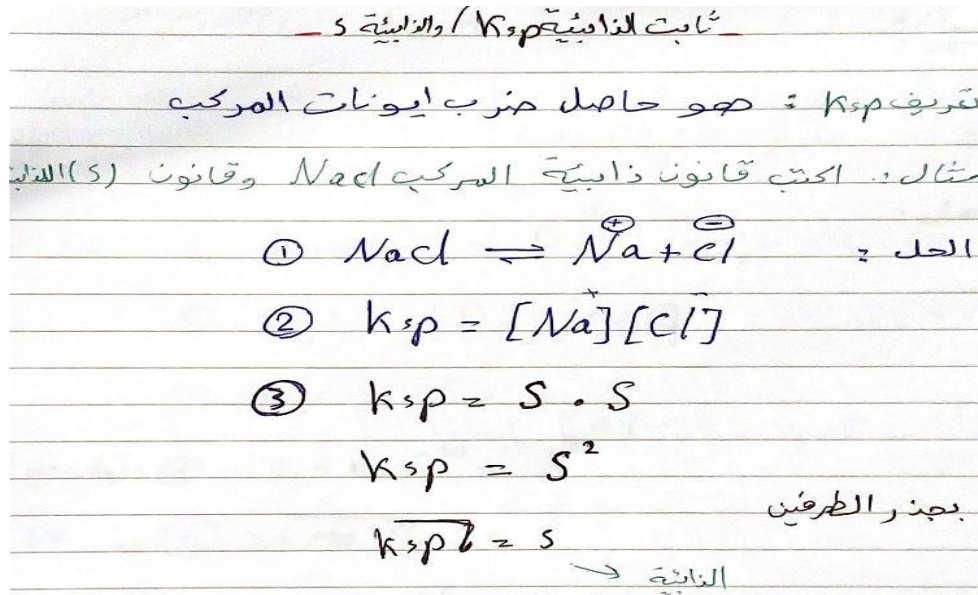 ثابت الذائبية Ksp / والذائبية s
تعريف Ksp : هو حاصل ضرب ايونات المركب
مثال: اكتب قانون ذائبية المركب Nacl وقانون (s) الذائبية
الحل :
① Nacl ⇌ Na⁺ + Cl⁻
② Ksp = [Na⁺] [Cl⁻]
③ Ksp = S . S
Ksp = S²
بجذر الطرفين
√Ksp = s
الذائبية ←